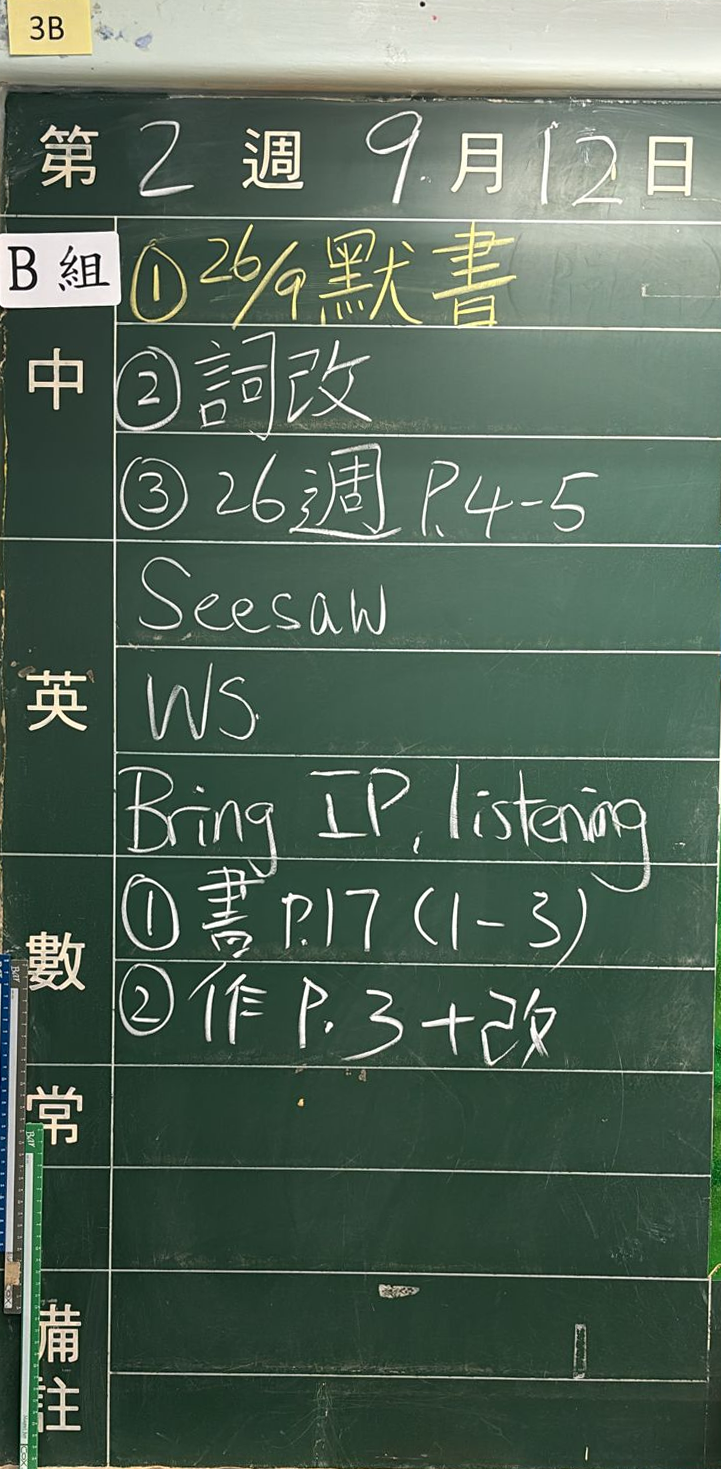 3B
第 2 週 9 月 12 日
B 組
① 26/9 默書
中
② 詞改
③ 26週 P.4-5
Seesaw
英
WS
Bring IP, listening
數
① 書 P.17 (1-3)
② 作 P.3+改
常
備
註